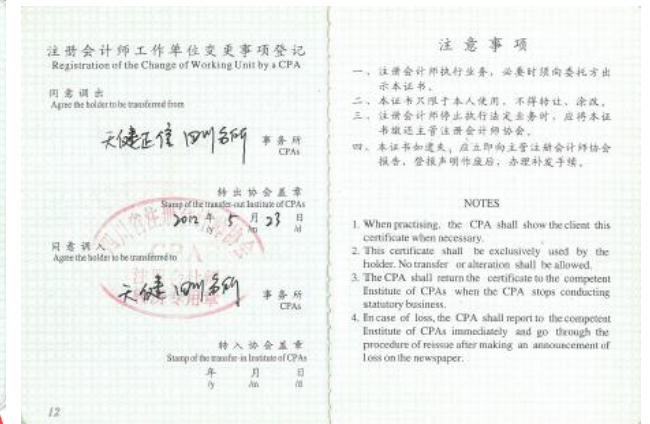 注册会计师工作单位变更事项登记
Registration of the Change of Working Unit by a CPA
同意调出
Agree the holder to be transferred from
天健正信 四川分所 事务所
CPAs
转出协会盖章
Stamp of the transfer-out Institute of CPAs
2012 年 5 月 23 日
/y /m /d
同意调入
Agree the holder to be transferred to
天健 四川分所 事务所
CPAs
转入协会盖章
Stamp of the transfer-in Institute of CPAs
年 月 日
/y /m /d
12
注意事项
一、注册会计师执行业务，必要时须向委托方出
示本证书。
二、本证书只限于本人使用，不得转让、涂改。
三、注册会计师停止执行法定业务时，应将本证
书缴还主管注册会计师协会。
四、本证书如遗失，应立即向主管注册会计师协会
报告，登报声明作废后，办理补发手续。
NOTES
1. When practising, the CPA shall show the client this
certificate when necessary.
2. This certificate shall be exclusively used by the
holder. No transfer or alteration shall be allowed.
3. The CPA shall return the certificate to the competent
Institute of CPAs when the CPA stops conducting
statutory business.
4. In case of loss, the CPA shall report to the competent
Institute of CPAs immediately and go through the
procedure of reissue after making an announcement of
loss on the newspaper.